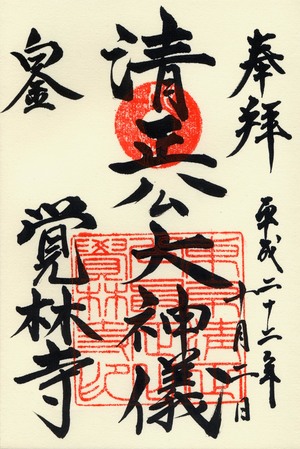 奉拝
平成二十二年
十月二日
清正公大神儀
白金
覚林寺